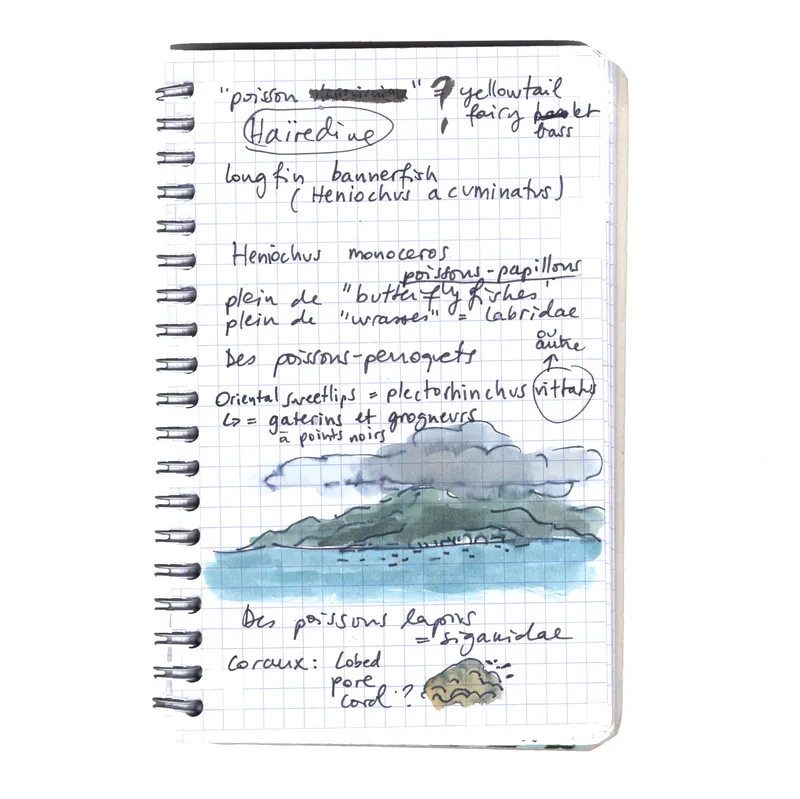 "poisson " ? yellowtail
fairy basslet
bass
Haïredine
longfin bannerfish
(Heniochus acuminatus)
Heniochus monoceros
poissons-papillons
plein de "butterfly fishes"
plein de "wrasses" = labridae
ou
autre
Des poissons-perroquets
Oriental sweetlips = plectorhinchus vittatus
↳ = gaterins et grogneurs
à points noirs
Des poissons lapins
= siganidae
coraux: Lobed
pore
coral ?